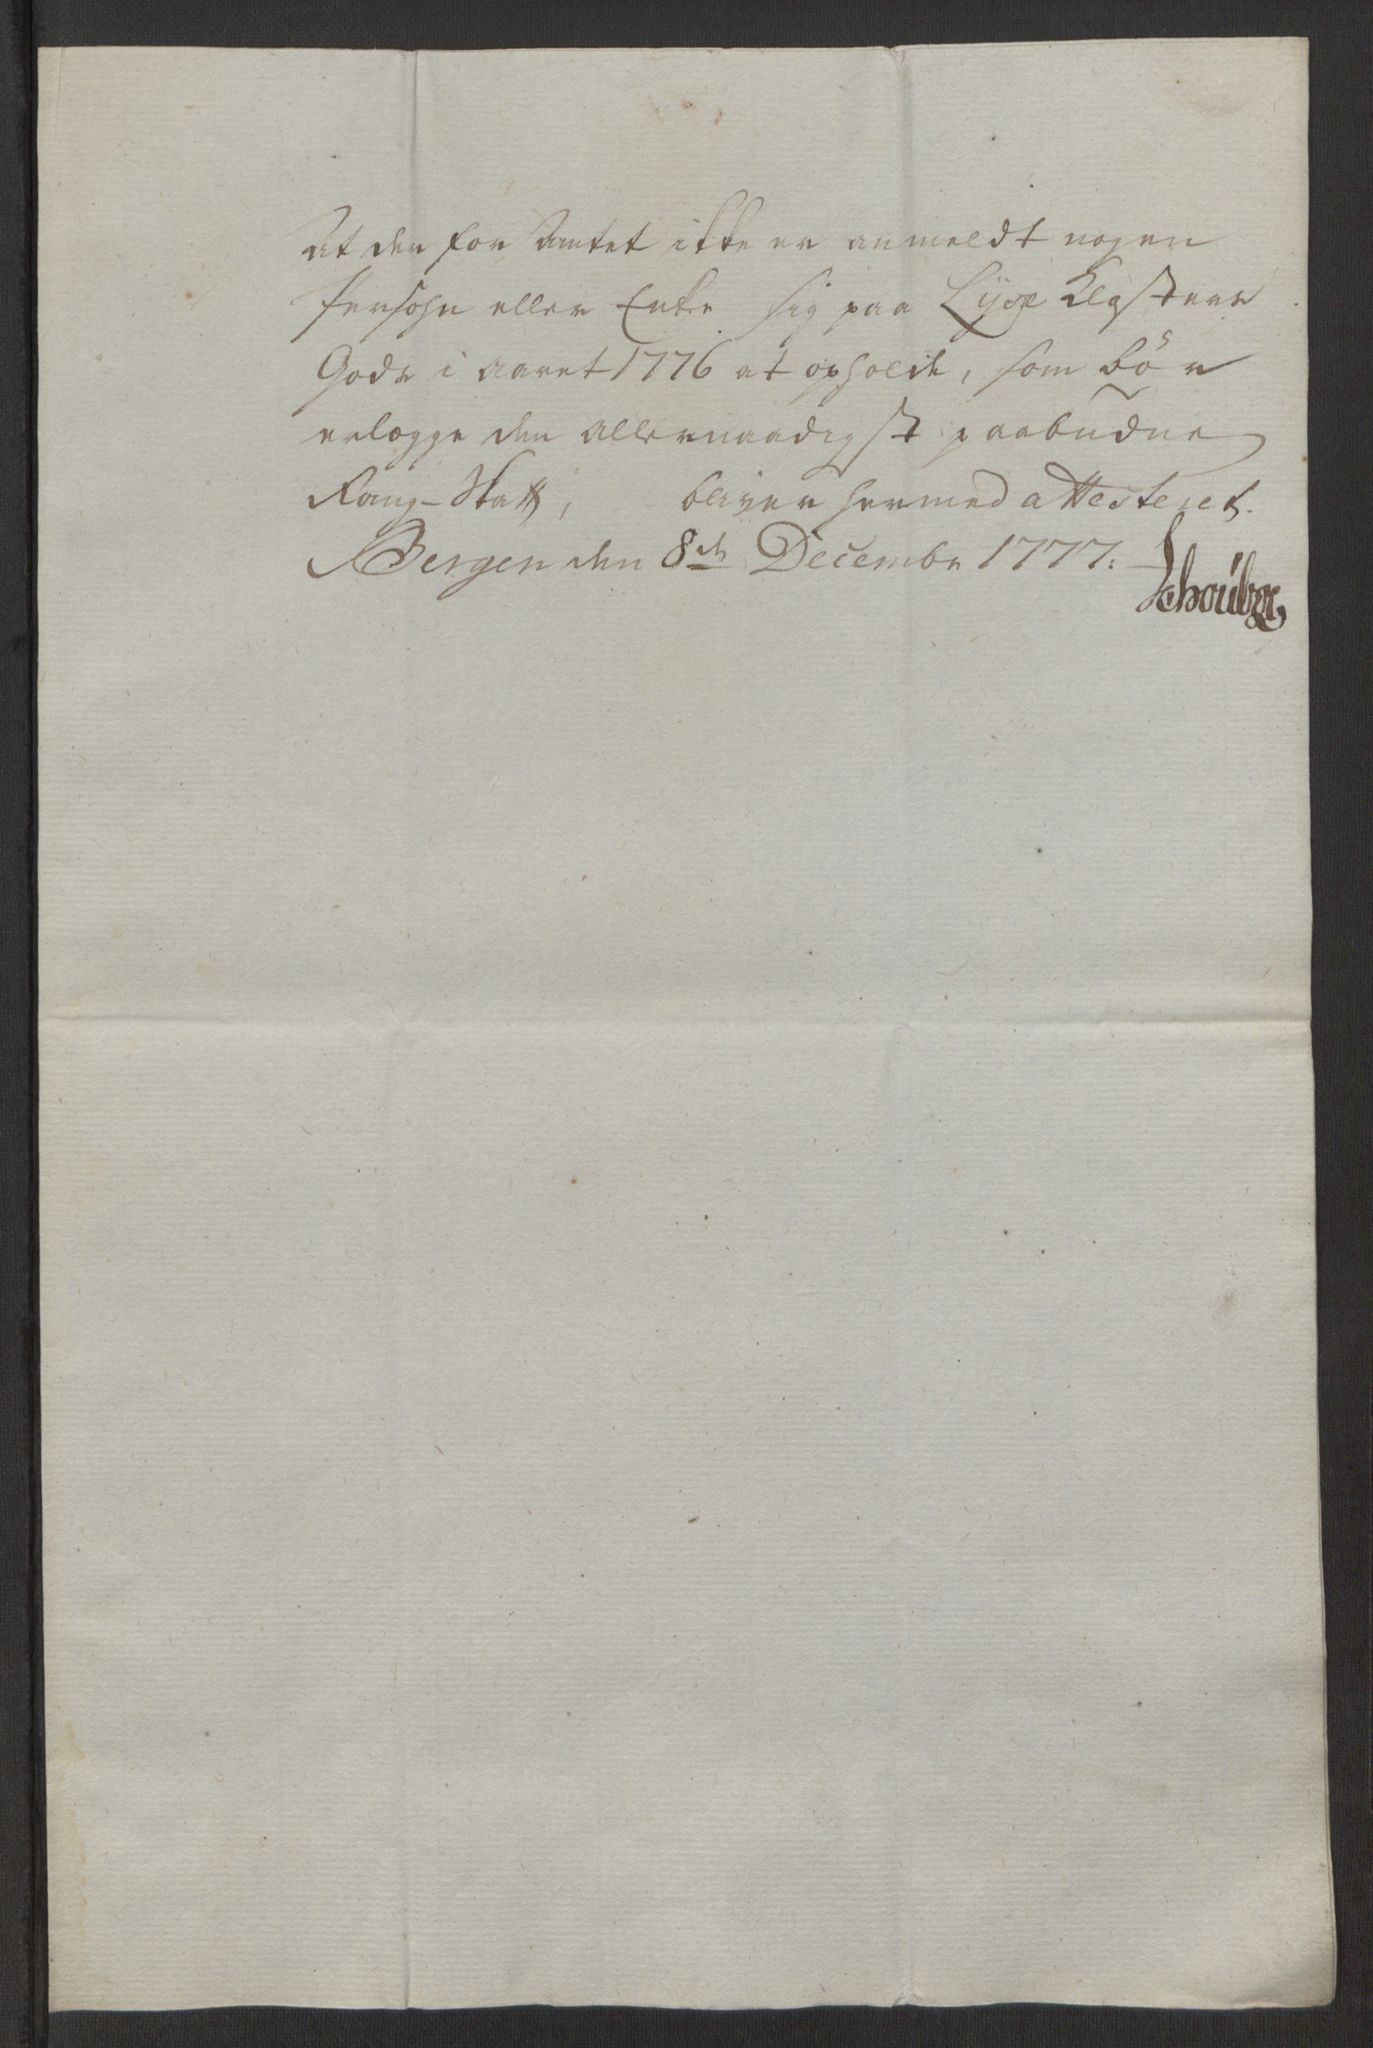 At der for Amtet ikke er anmeldt nogen
Persohn eller Enke sig paa Lyse Klosters
Gods i aaret 1776 at opholde, som bör
erlægge den allernaadigst paabudne
Rang-Skatt, bliver hermed attesteret.
Bergen den 8de Decembr 1777.